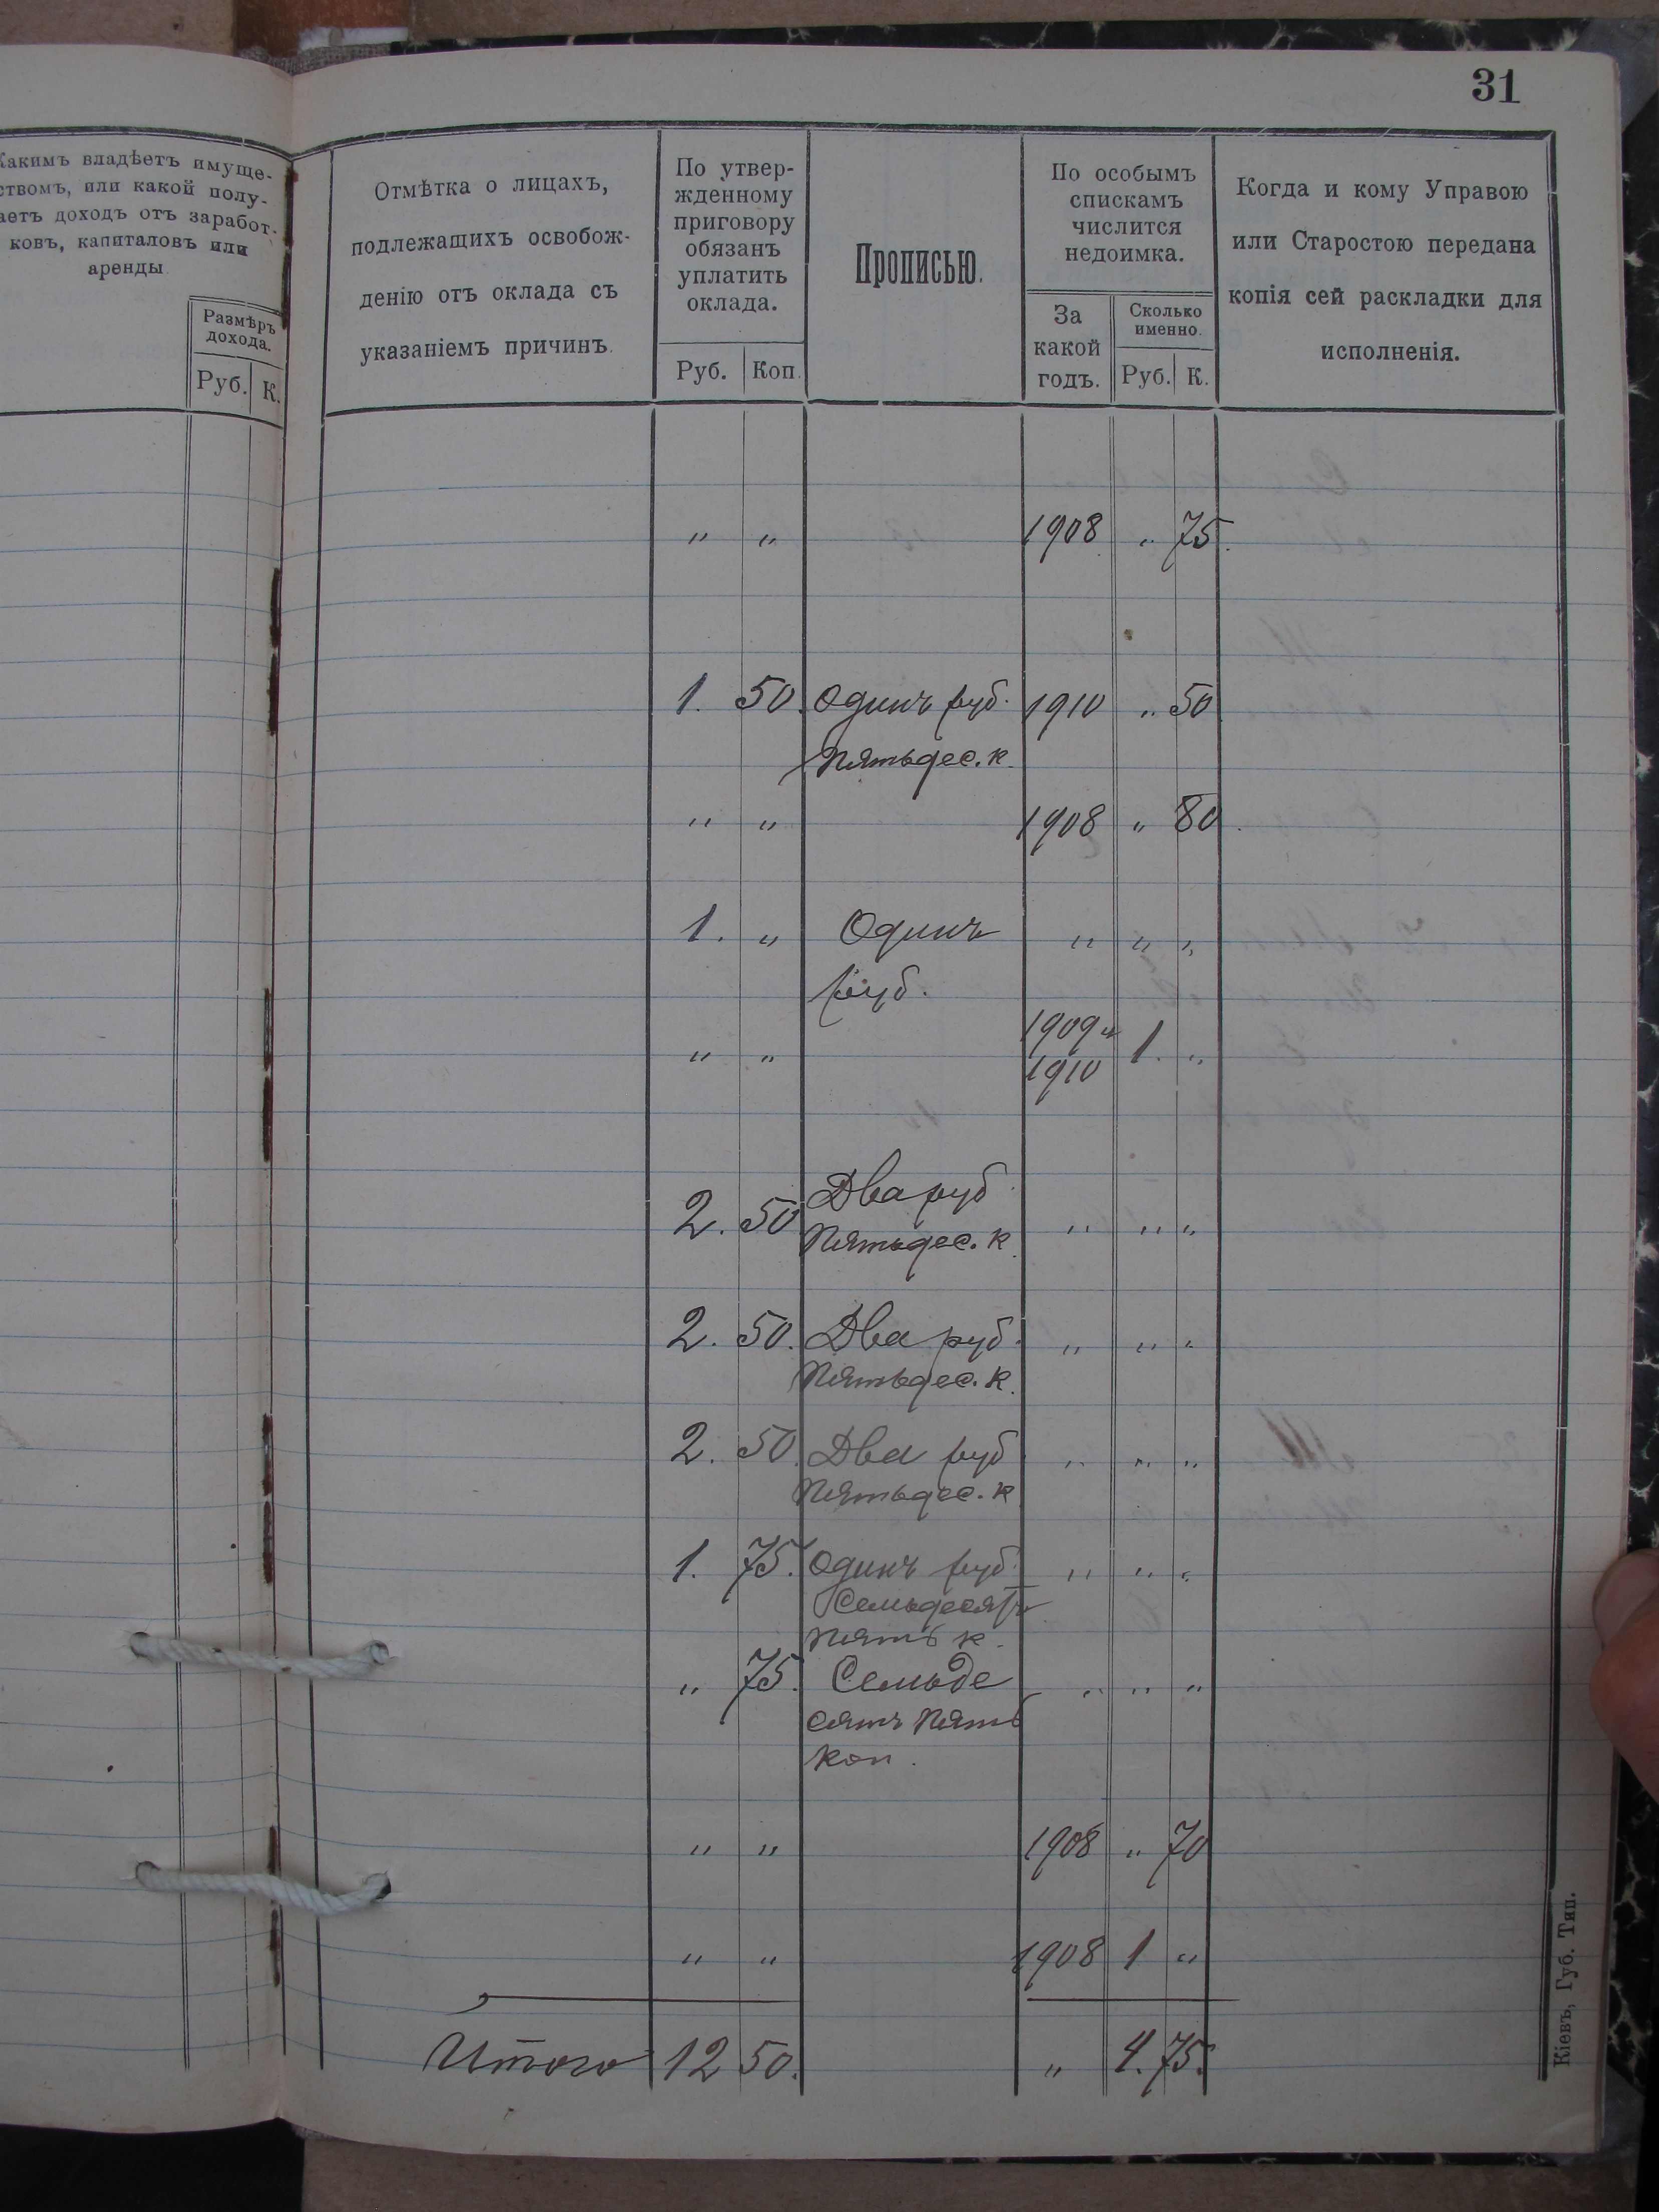 31
Какимъ владѣетъ имуще-
ствомъ, или какой полу-
аетъ доходъ отъ заработ-
ковъ, капиталовъ или
аренды.
Размѣръ
дохода.
Руб. К.
Отмѣтка о лицахъ,
подлежащихъ освобож-
денію отъ оклада съ
указаніемъ причинъ.
По утвер-
жденному
приговору
обязанъ
уплатить
оклада.
Руб. Коп.
Прописью.
По особымъ
спискамъ
числится
недоимка.
За
какой
годъ.
Сколько
именно.
Руб. К.
Когда и кому Управою
или Старостою передана
копія сей раскладки для
исполненія.
" " 1908 " 75.
1. 50. Одинъ руб. 1910 " 50
Пятьдес. к.
" " 1908 " 80.
1. " Одинъ " " "
руб.
" " 1909 и 1. "
1910
2. 50 Два руб " " "
Пятьдес. к.
2. 50. Два руб. " " "
Пятьдес. к.
2. 50. Два руб " " "
Пятьдес. к
1. 75. Одинъ руб. " " "
Семьдесятъ
пять к.
" 75. Семьде " " "
сятъ Пять
коп.
" " 1908 " 70
" " 1908 1 "
Итого 12 50. " 4. 75.
Кіевъ, Губ. Тип.